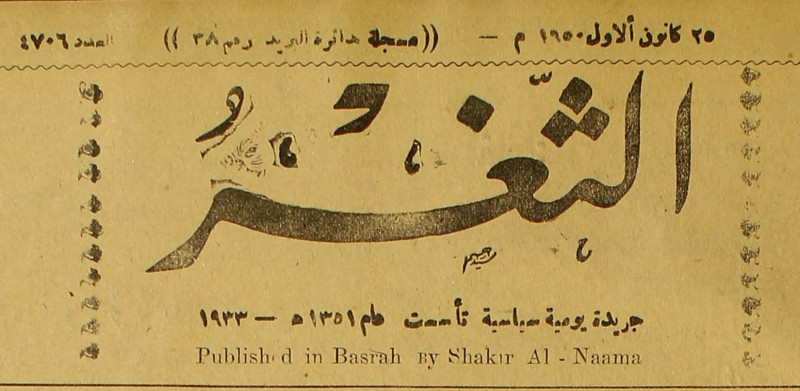 ٢٥ كانون ألاول ١٩٥٠ م — ((مسجلة بدائرة البريد رقم ٣٨)) العدد ٤٧٠٦
الثَّغْرُ
جريدة يومية سياسية تأسست عام ١٣٥١ ه — ١٩٣٣
Published in Basrah By Shakir Al - Naama